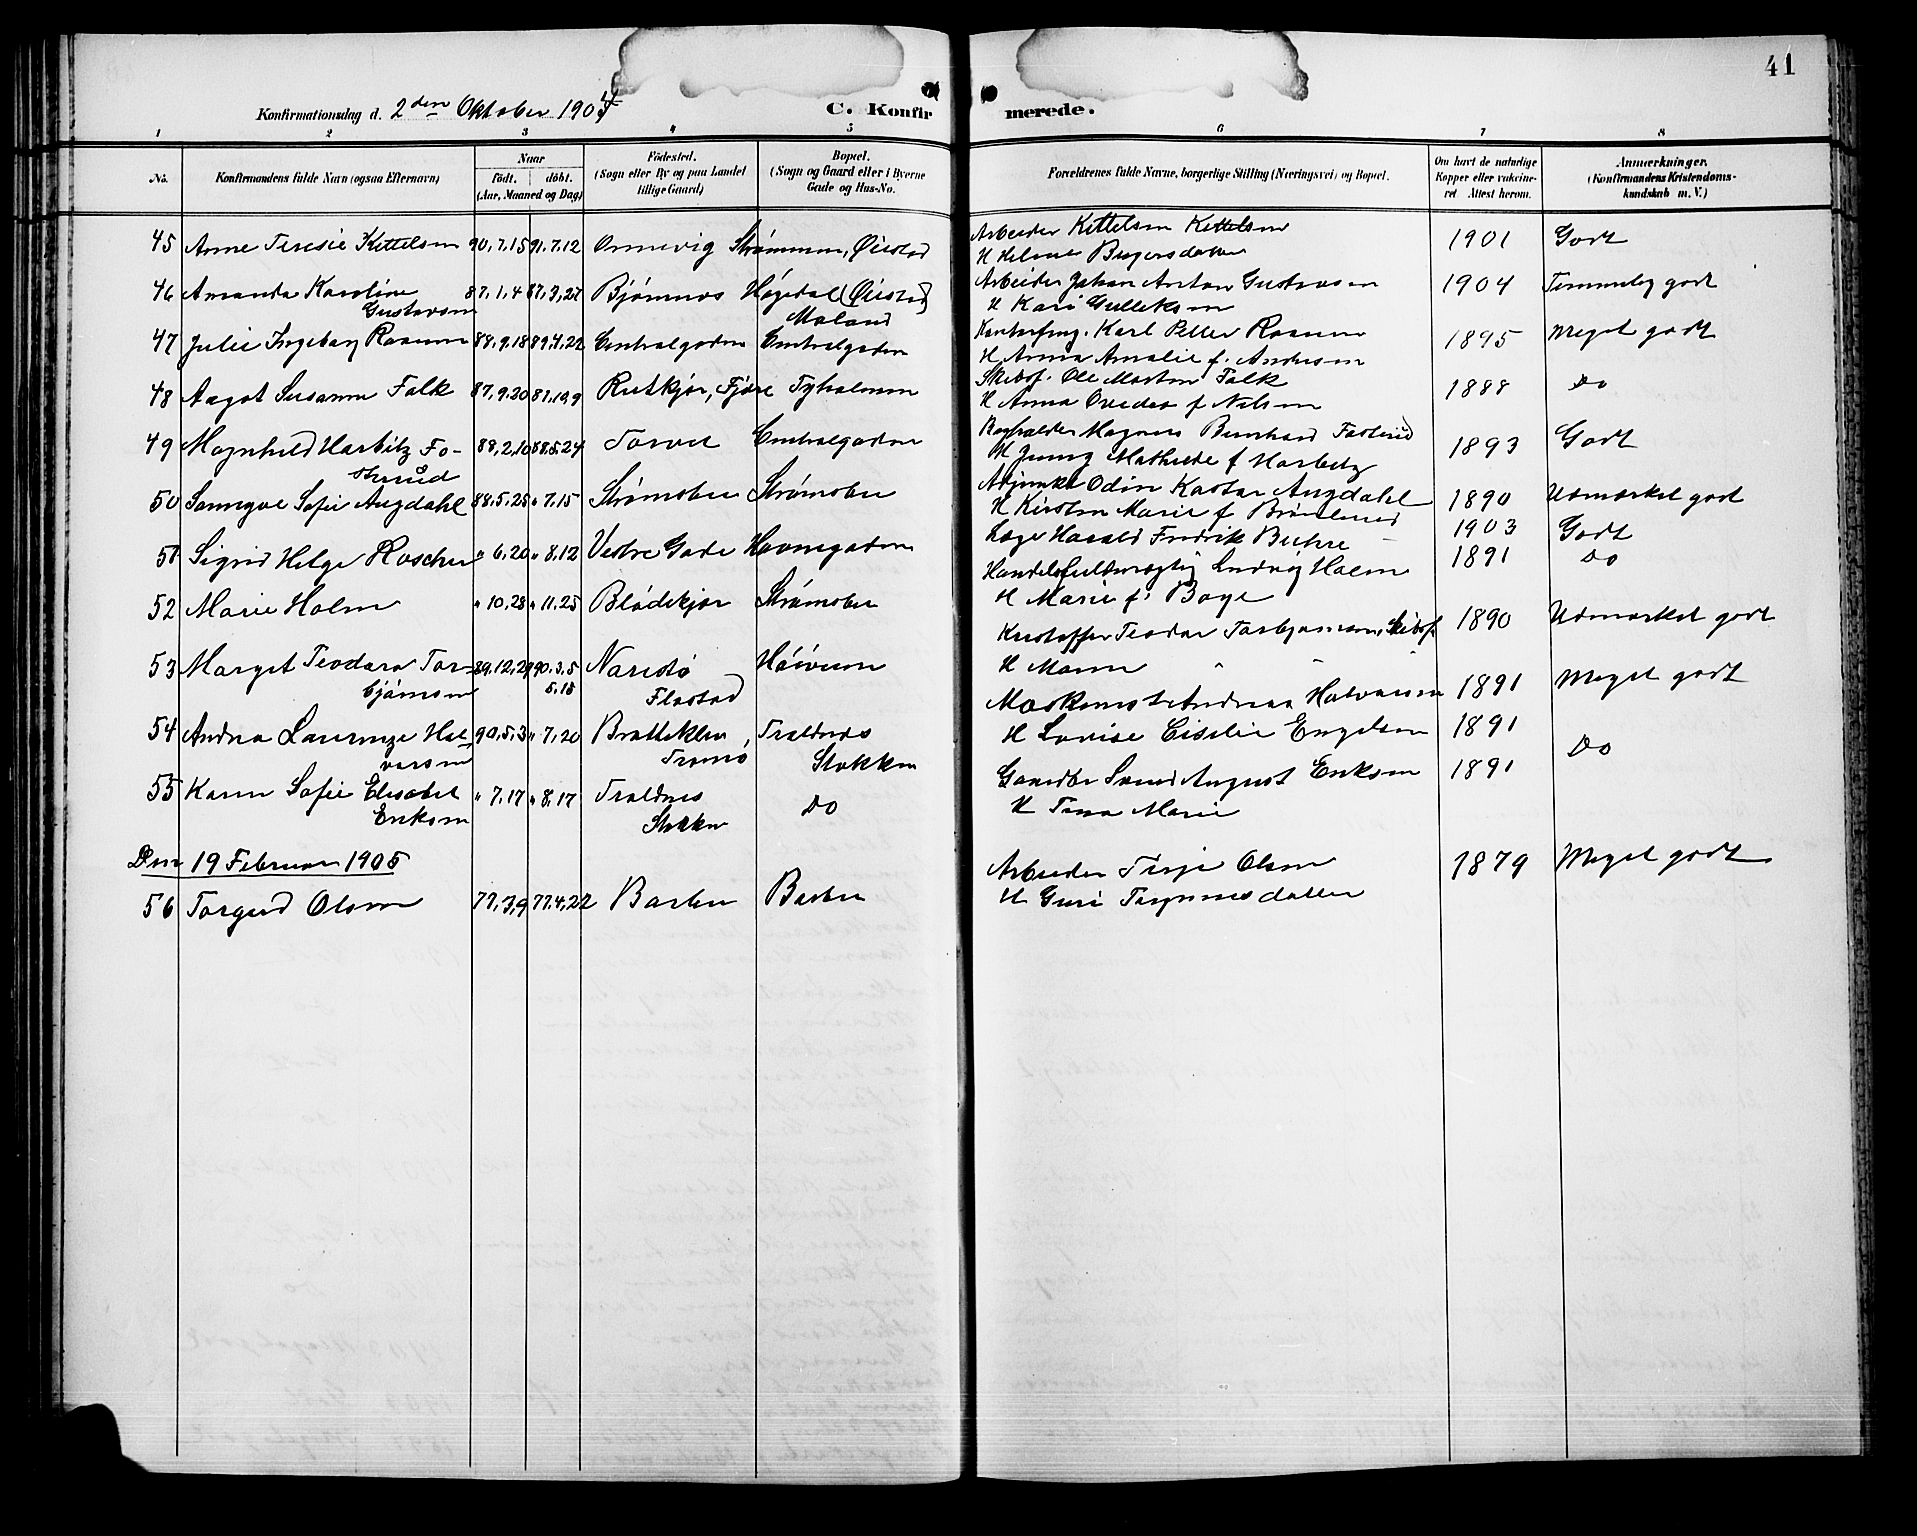 41
Konfirmationsdag d. 2den Oktober 1904
C. Konfirmerede.
1 2 3 4 5 6 7 8
No.
Konfirmandens fulde Navn (ogsaa Efternavn)
Naar
født. døbt.
(Aar, Maaned og Dag)
Fødested.
(Sogn eller By og paa Landet
tillige Gaard)
Bopæl.
(Sogn og Gaard eller i Byerne
Gade og Hus-No.
Forældrenes fulde Navne, borgerlige Stilling (Næringsvei) og Bopæl.
Om havt de naturlige
Kopper eller vakcine-
ret Attest herom.
Anmærkninger.
(Konfirmandens Kristendoms-
kundskab m. V.)
45 Anne Teresie Kittelsen 90,7,15 91,7,12 Omvevig Strømmen, Øiestad Arbeider Kittelsen Kittelsen 1901 Godt
H Helene Birgersdatter
46 Amanda Karoline 87,1,4 87,3,27 Bjørnnes Høgedal (Øiestad) Arbeider Johan Anton Gustavsen 1904 Temmelig godt
Gustavsen Moland H Kari Gulleksen
47 Julie Ingeborg Rosum 88,9,18 89,4,22 Centralgaden Centralgaden Karl Petter 1895 Meget godt
H Anna Amalie f. Andersen
48 Aagot Susanne Falk 87,9,20 87,10,9 Rutkjør, Fjære Tyholmen Skibsf. Ole Morten Falk 1888 Do
H Anna f Nilsen
49 Magnhild Harbitz Fo- 88,2,10 88,5,24 Torvet Centralgaden Boghandler Magnus Bernhard 1893 Godt
strud H Jenny Mathilde f Harbitz
50 Sanngve Sofie Augdahl 88,5,25 " 7,15 Strømsbu Strømsbu Adjunkt Odin Kastar Augdahl 1890 Udmærket godt
H Kirsten Marie f
51 Sigrid Helge Roscher " 6,20 " 8,12 Vestre Gade Havnegaden Læge Harald Fredrik 1903 Godt
52 Marie Holm " 10,28 " 11,25 Blødekjær Strømsbu Handelsfuldmægtig Ludvig Holm 1891 Do
H Marie f. Boye
53 Marget Teodora Tor- 89,12,29 90,3,5 Narestø Høivum Kristoffer Teodor Torbjørnsen, Skibsf. 1890 Udmærket godt
bjørnsen 5,18 Flostad H Maren " "
54 Andrea Laurenze Hal- 90,5,3 " 7,20 Bratteklev, Traldnes Maskinist Andreas Halvorsen 1891 Meget godt
vorsen Tromø Stokken H Lovise Cisilie Engelsen 1891
55 Karen Sofie Elisabet " 7,17 " 8,17 Traldnes Do Gaardbr Svend August Eriksen 1891 Do
Eriksen Stokken H Tina Marie
Den 19 Februar 1905
56 Torgerd Olsen 77,3,9 77,4,22 Barbu Barbu Arbeider Terje Olsen 1879 Meget godt
H Guri